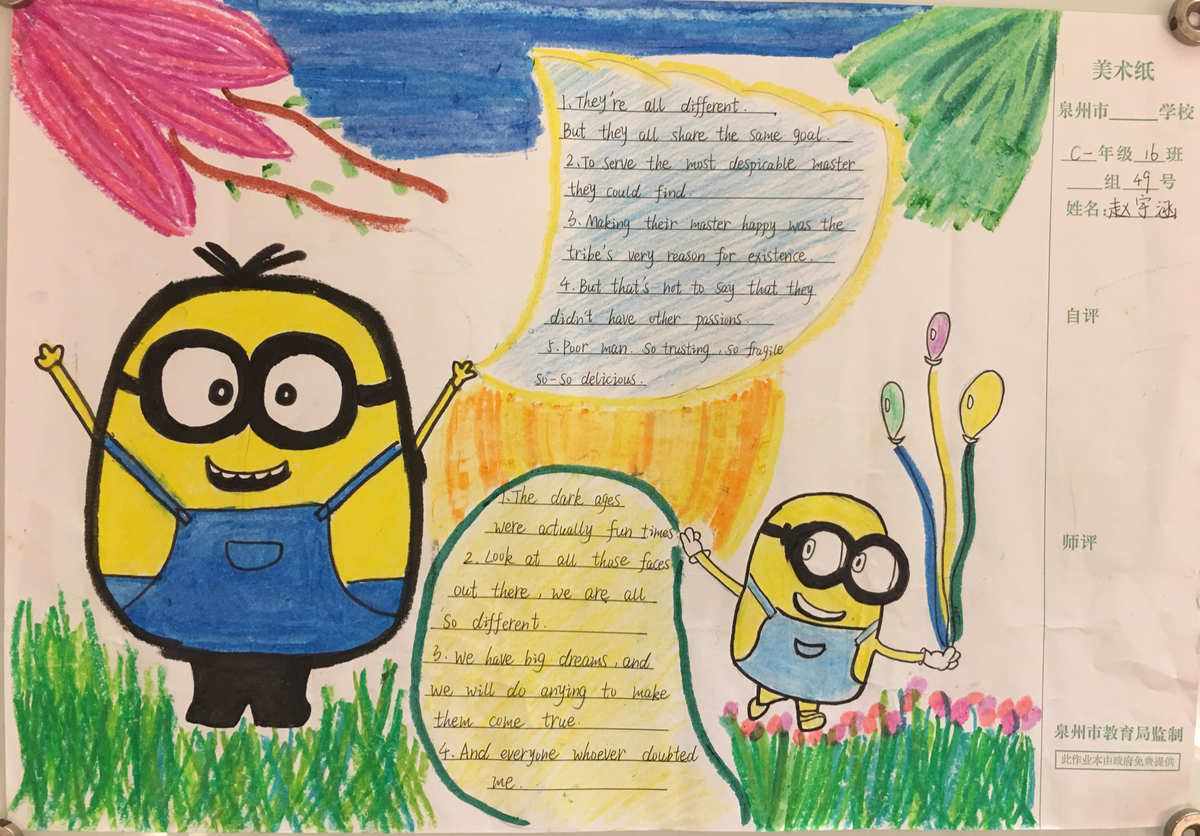 1. They're all different.
But they all share the same goal.
2. To serve the most despicable master
they could find.
3. Making their master happy was the
tribe's very reason for existence.
4. But that's not to say that they
didn't have other passions.
5. Poor man. so trusting, so fragile
so-so delicious.
1. The dark ages
were actually fun times
2. Look at all those faces
out there, we are all
so different.
3. We have big dreams, and
we will do anying to make
them come true.
4. And everyone whoever doubted
me.
美术纸
泉州市_____学校
C-年级 16 班
___组 49 号
姓名:赵宇涵
自评
师评
泉州市教育局监制
此作业本由政府免费提供